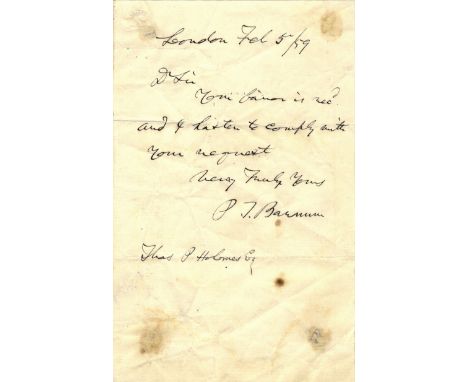 London Feb 5/59
Dr Sir
Your favor is recd
and I hasten to comply with
Your request
Very Truly Yours
P T. Barnum
Thos P Holmes Eq